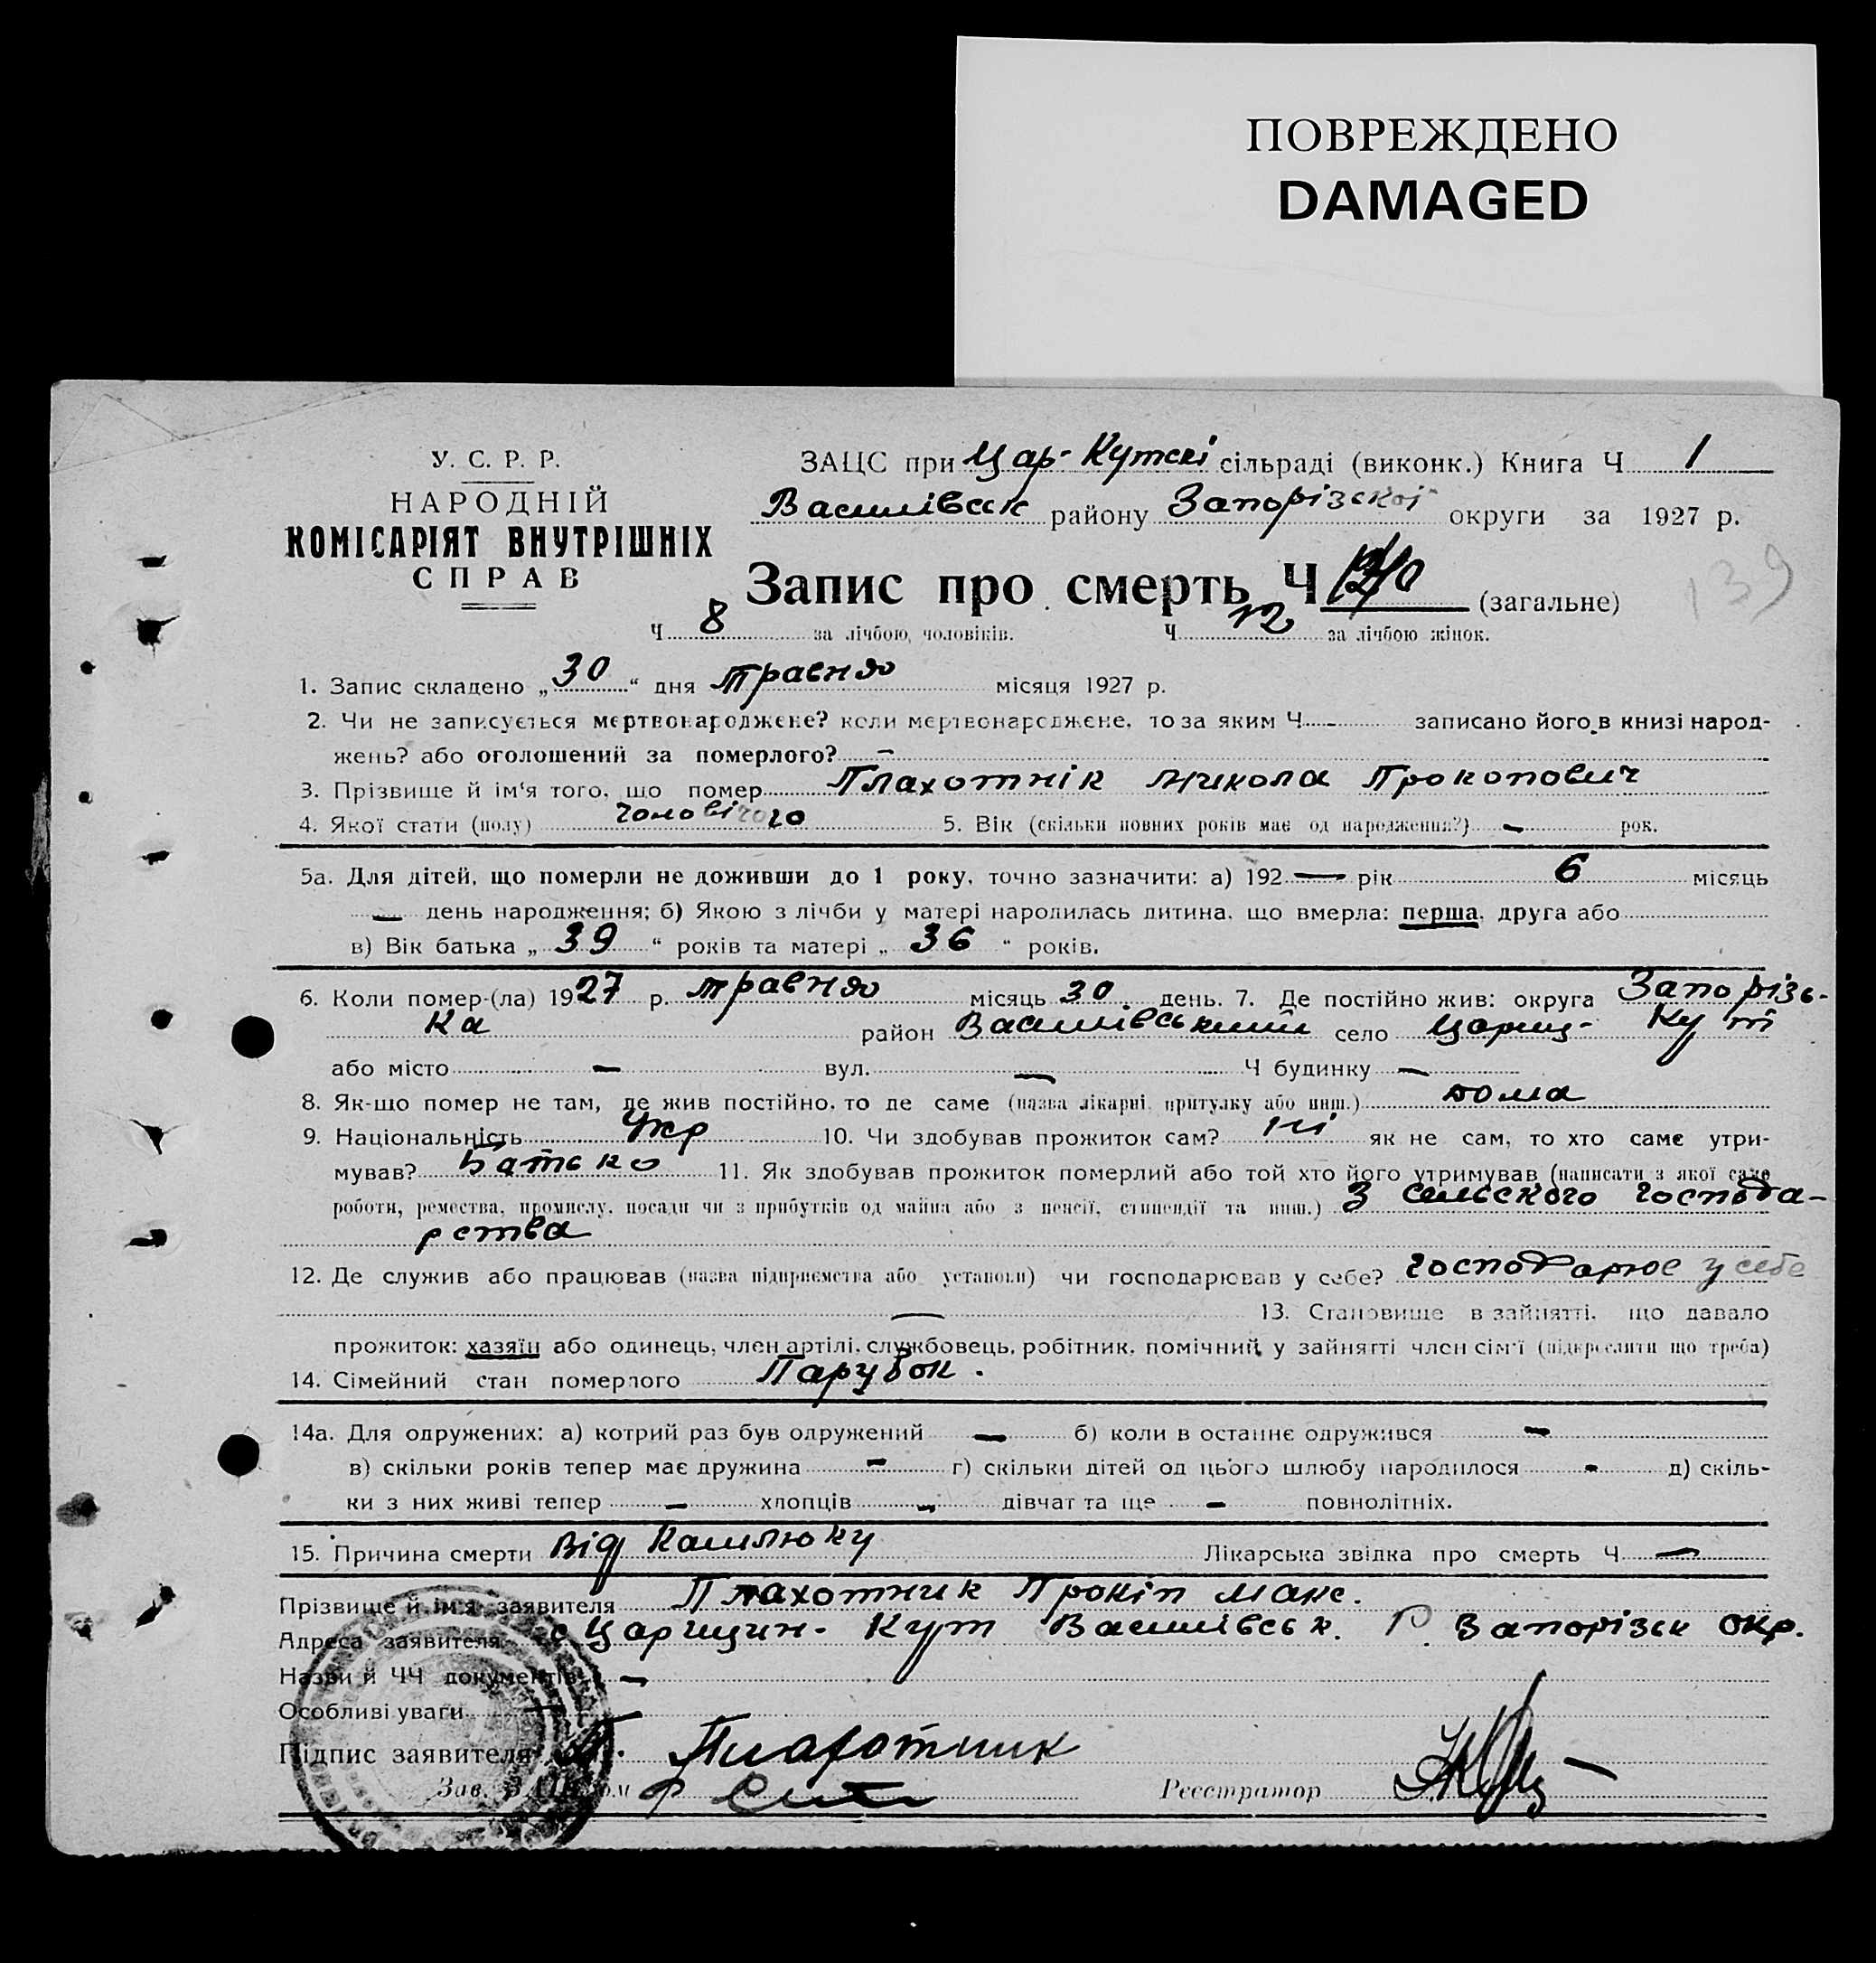 ПОВРЕЖДЕНО
DAMAGED
У. С. Р. Р.
НАРОДНІЙ
КОМІСАРІЯТ ВНУТРІШНІХ
СПРАВ
ЗАЦС при Цар-Кутскі сільраді (виконк.) Книга Ч 1
Василівськ району Запорізскої округи за 1927 р.
Запис про смерть Ч (загальне)
139
Ч 8 за лічбою чоловіків. Ч 12 за лічбою жінок.
1. Запис складено „30“ дня травня місяця 1927 р.
2. Чи не записується мертвонароджене? коли мертвонароджене, то за яким Ч - записано його в книзі народ-
жень? або оголошений за померлого? -
3. Прізвище й ім'я того, що помер Плахотнік Микола Прокопович
4. Якої стати (полу) чоловічого 5. Вік (скільки повних років має од народження?) - рок.
5а. Для дітей, що померли не доживши до 1 року, точно зазначити: а) 192 — рік 6 місяць
— день народження; б) Якою з лічби у матері народилась дитина, що вмерла: перша, друга або
в) Вік батька „39“ років та матері „36“ років.
6. Коли помер-(ла) 1927 р. травня місяць 30 день. 7. Де постійно жив: округа Запорізь-
ка район Василівський село Цариц- Кут
або місто — вул. — Ч будинку —
8. Як-що помер не там, де жив постійно, то де саме (назва лікарні, притулку або инш.) дома
9. Національність Укр 10. Чи здобував прожиток сам? Ні як не сам, то хто саме утри-
мував? Батько 11. Як здобував прожиток померлий або той хто його утримував (написати з якої саме
роботи, ремества, промислу, посади чи з прибутків од майна або з пенсії, стипендії та инш.) З сельского господа-
рства
12. Де служив або працював (назва підприємства або установи) чи господарював у себе? господарює у себе
— 13. Становище в зайнятті, що давало
прожиток: хазяїн або одинець, член артілі, службовець, робітник, помічний у зайнятті член сім'ї (підкреслити що треба)
14. Сімейний стан померлого Парубок.
14а. Для одружених: а) котрий раз був одружений — б) коли в останнє одружився —
в) скільки років тепер має дружина - г) скільки дітей од цього шлюбу народилося - д) скіль-
ки з них живі тепер - хлопців - дівчат та ще - повнолітніх.
15. Причина смерти від Кашлюку Лікарська звідка про смерть Ч —
Прізвище й ім'я заявителя Плахотник Прокіп Макс.
Адреса заявителя с Царицин- Кут Василівськ. Р. Запорізьк окр.
Назви й ЧЧ документів —
Особливі уваги —
Підпис заявителя П. Плахотник
Зав. ЗАЦСом Реєстратор